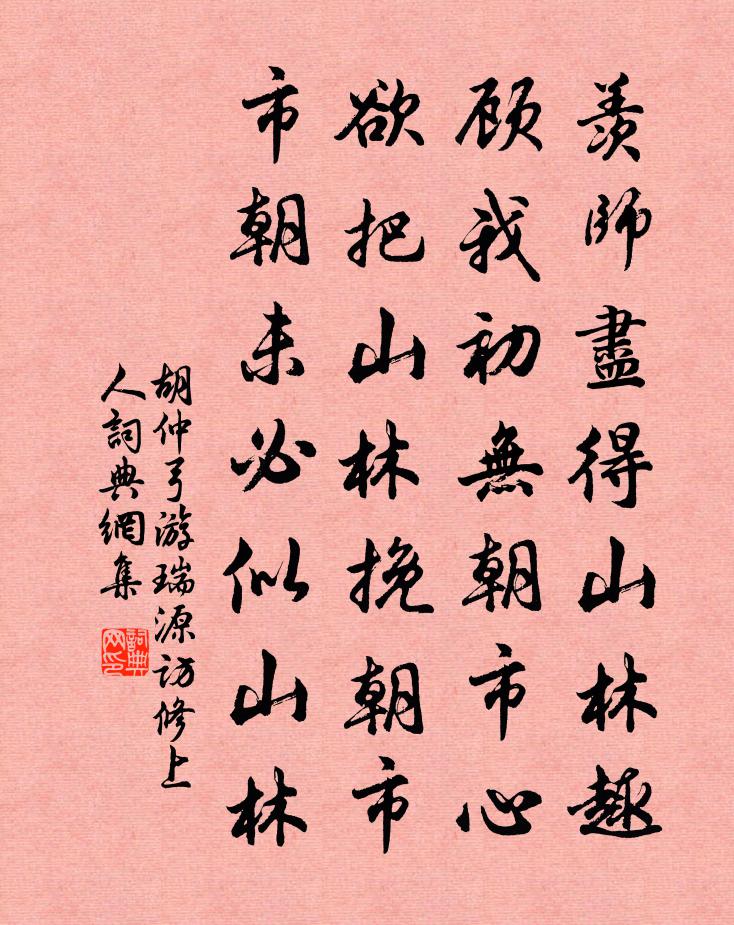 羨師盡得山林趣
顧我初無朝市心
欲把山林挽朝市
市朝未必似山林
胡仲弓游瑞源訪修上
人詞典網集
詞典网印